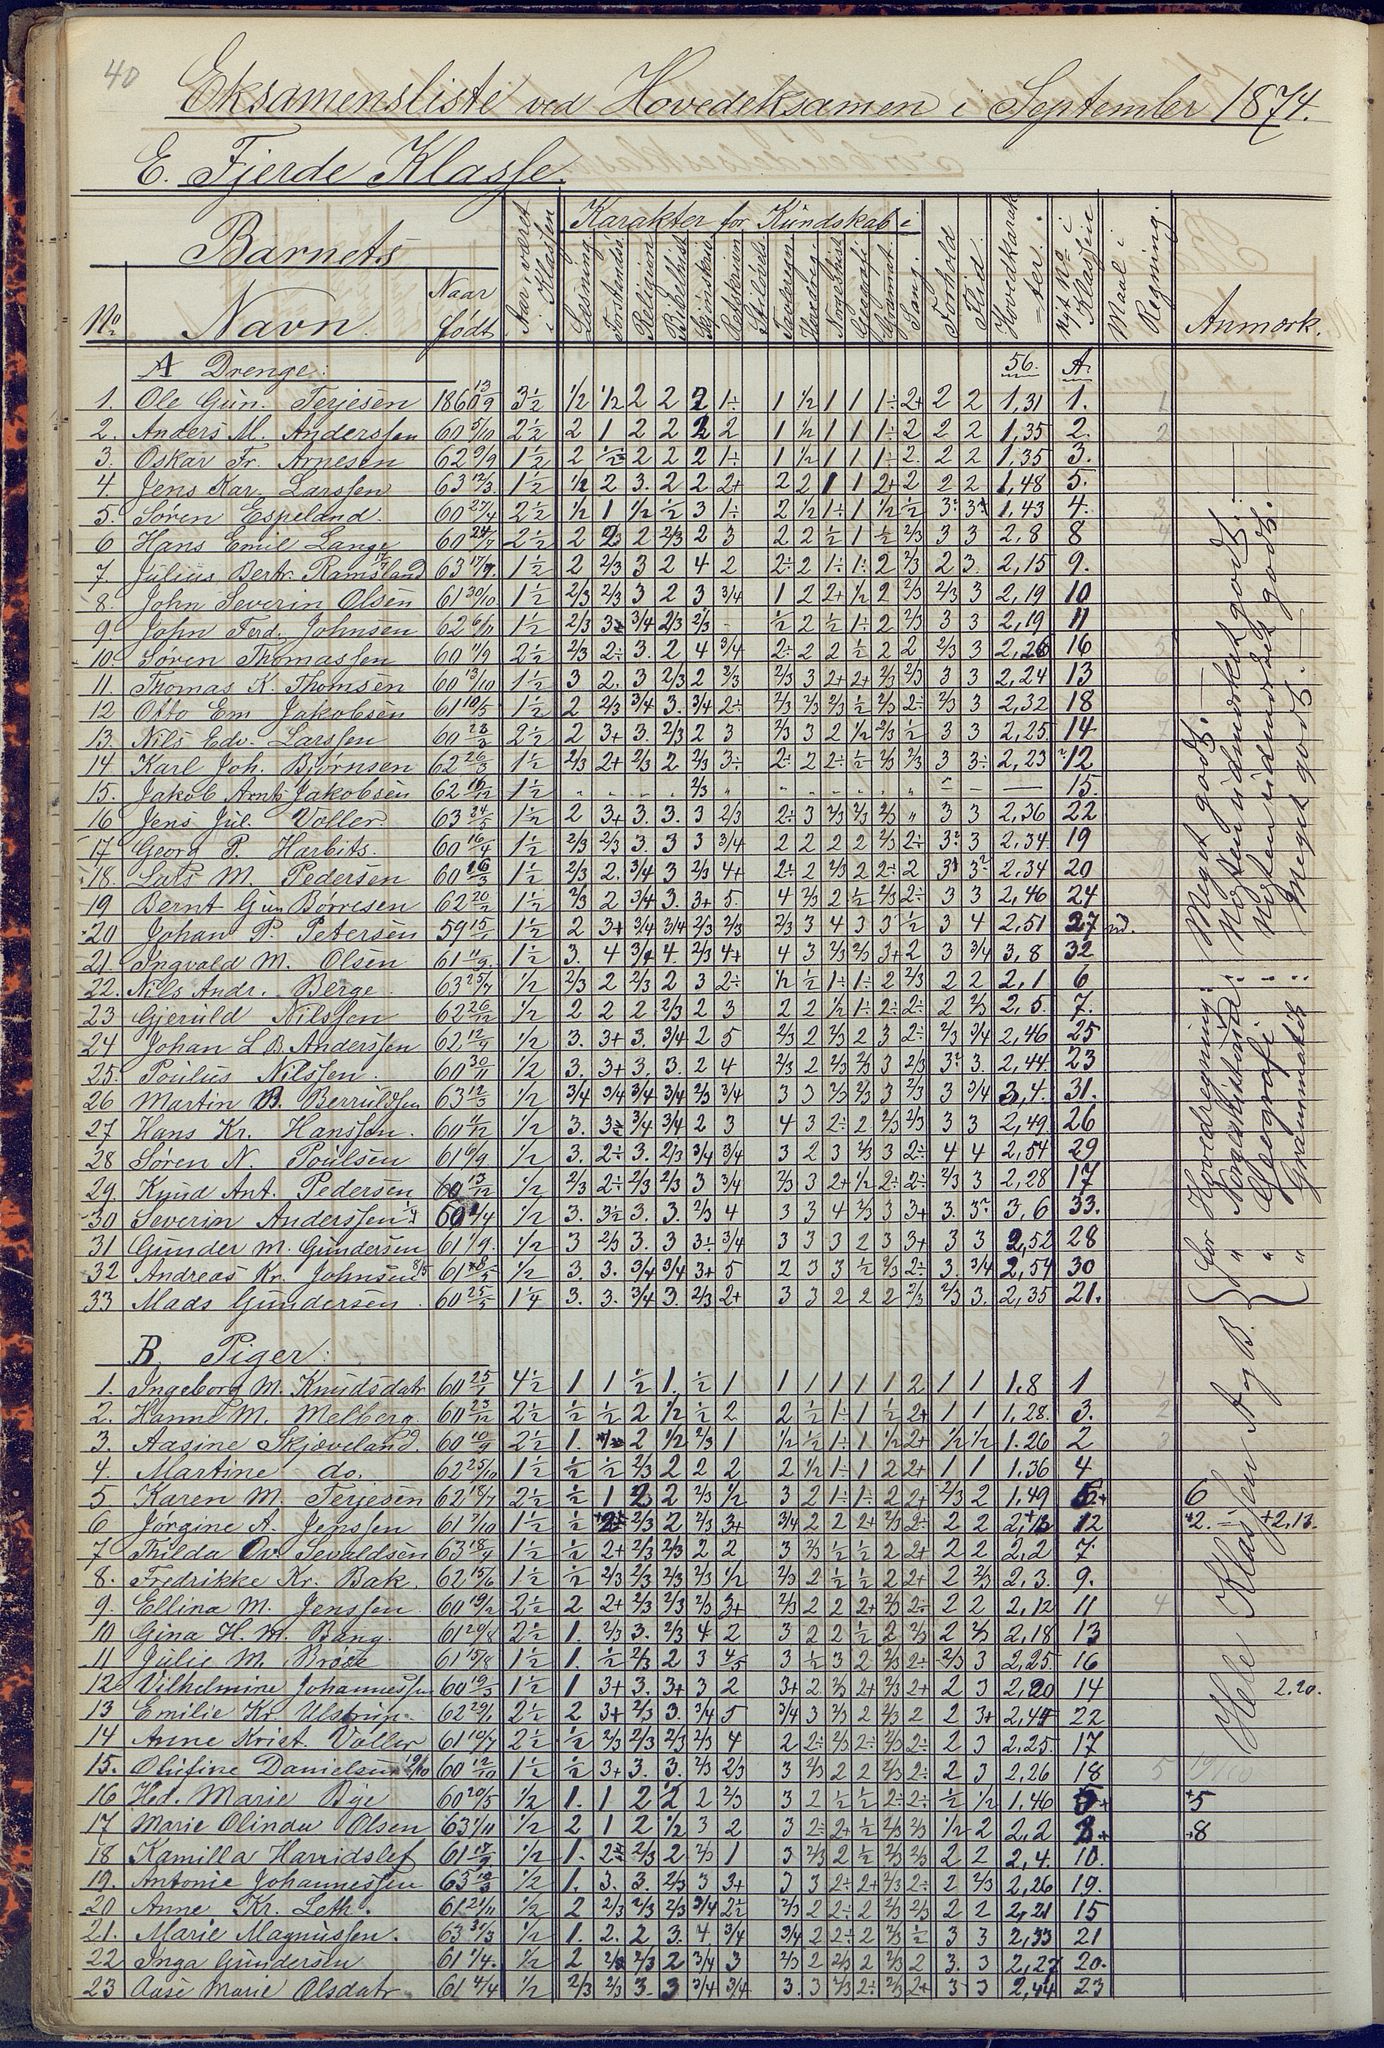 40
Eksamensliste ved Hovedeksamen i September 1874.
E. Fjerde Klasse.
Barnets
No Navn. Naar født Aar, været i Klassen
Karakter for Kundskab i
Læsning. Forstandsø. Religion Bibelhist Skjønskriv. Retskrivn. Stiløvels. Tavleregn Hovedreg Norgeshist Geografi Grammat. Sang.
Forhold Flid. Hovedkarakter. Nyt No i Klassen Maal i Regning. Anmærk.
A Drenge: 56. A.
1. Ole Gun. Terjesen 1860 13/9 3 1/2 1/2 1/2 2 2 2 1÷ 1 1/2 1 1 1÷ 2+ 2 2 1,31 1.
2. Anders M. Anderssen 60 5/10 2 1/2 2 1 2 2 2 2 1 1/2 1 1 1÷ 2 2 2 1,35 2.
3. Oskar Fr. Arnesen 62 9/9 1 1/2 2 1/2 2 2 2 1÷ 1 1/2 1 1 1÷ 2 2 2 1,35 3.
4. Jens Kar. Larssen 63 12/3 1 1/2 1/2 2 3. 2 2 2+ 2 2 1 1 2+ 2 2 2 1,48 5.
5. Søren Espeland. 60 27/4 2 1/2 1/2 1 1/2 1/2 3 1÷ 2 1/2 1÷ 1 1/2 1/2 3? 3? 1,43 4.
6 Hans Emil Lange 60 24/7 2 1/2 2 2 2 2/3 2 3 2 2 1/2 1 1/2 2/3 3 3 2,8 8
7. Julius Bertr. Ramsland 63 17/9. 1 1/2 2 2/3 3 2 4 2 2÷ 2 1÷ 1÷ 2 2/3 2 3. 2,15 9.
8. John Severin Olsen 61 30/10 1 1/2 2/3 2/3 3 2 3 3/4 1 2 2+ 1/2 2 2/3 2/3 3 2,19 10
9. John Ferd. Johnsen 62 6/11 1 1/2 2/3 3+ 3/4 2/3 2/3 - 1/2 2 1/2 1÷ 2 2/3 3 3 2,19 11
10. Søren Thomassen 60 1/9 2 1/2 2/3 2÷ 3. 2 4 3/4 2÷ 2 2 1/2 2 2 2/3 3 2,28 16
11. Thomas K. Thomsen 60 13/10 1 1/2 3 2. 3 2/3 2 2/3 2/3 3 2+ 2+ 2/3 2/3 3 3 2,24 13
12 Otto Em Jakobsen 61 10/5 1 1/2 2 2/3 3/4 3. 3/4 2÷ 2/3 2/3 2/3 1/2 2/3 2÷ 2/3 3 2,32 18
13. Nils Edv. Larssen 60 23/3 2 1/2 2 3+ 3. 2/3 2 3 2/3 3 2 1/2 2/3 1/2 3 3 2,25. 14
14. Karl Joh. Bjørnsen 62 26/3 1 1/2 2/3 2+ 2/3 2 2/3 3÷ 2÷ 2 2÷ 1/2 2/3 2/3 3 3÷ 2,23 12
15. Jakob Arnt Jakobsen 62 16/12 1 1/2 2/3 15.
16 Jens Jul. Voller. 63 24/5 1 1/2 2 3+ 3. 3. 3 2/3 2÷ 3 2/3 2/3 2/3 " 3 3 2,36 22
17 Georg P. Harbits. 60 16/4 1 1/2 2/3 2/3 3. 3 3 3/4 2 2 2 2 2/3 2÷ 3? 3 2,34 19
18. Lars M. Pedersen 60 16/3 1 1/2 2/3 2. 3/4 3 2/3 4+ 2÷ 2 2/3 2 2÷ 2 3? 3? 2,34 20
19 Bernt Gun Borresen 62 20/12 1 1/2 2/3 2 3/4 3. 3+ 5. 4 2/3 2 1/2 2/3 2÷ 3 3 2,46 24
20 Johan P. Petersen 59 15/1 1 1/2 2 3+ 3/4 3/4 2/3 2/3 2/3 3 4 3 3 1/2 3 4 2,51 27 nd.
21. Ingvald M. Olsen 61 11/9. 1 1/2 3. 4 3/4 4. 2/3 4+ 4 3 2/3 2/3 3+ 2 3 3/4 3,8 32
22. Nils Andr. Berge 63 25/7 1/2 2/3 2 2/3 2 3 2÷ 1/2 1/2 1÷ 1÷ 2 2/3 2 2 2,1 6
23 Gjeruld Nilssen 62 26/12 1/2 2 2 2 2/3 2 3 2 2 1/2 1÷ 2÷ 2÷ 2 2/3 2,5. 7.
24 Johan L B Anderssen 62 12/9 1/2 3. 3+ 3. 3/4 2 5 2/3 2 2/3 2 3 2÷ 2/3 3/4 2,46 25
25. Poulus Nilssen. 60 30/11 1/2 3. 3+ 3. 3. 2 4 2/3 2 2/3 2/3 3 2/3 3? 3. 2,44 23
26 Martin B. Berruldsen 63 12/3 1/2 3/4 3/4 3/4 3/4 2/3 3/4 3 3 2/3 2/3 3 2/3 3 3/4 3,4. 31.
27 Hans Kr. Hanssen. 60 11/12 1/2 3. 3÷ 3/4 3/4 2 3 4 3 2÷ 2 2/3 2/3 3 3 2,49 26
28 Søren N. Poulsen 61 9/9 1/2 3. 2÷ 3. 2/3 3/4 3/4 3 2 3 2/3 3 2÷ 4 4 2,54 29
29. Knud Ant. Pedersen 60 13/12 1/2 2/3 2÷ 2/3 2/3 3 3/4 2/3 3 2+ 1/2 2÷ 2÷ 2/3 3 2,28 17
30 Severin Anderssen 60 1/4 1/2 3. 3 1/2 3. 3. 2/3 4 3 3 4 2/3 3 3+ 3. 3? 3,6 33.
31 Gunder M. Gundersen 61 1/9. 1/2 3 2/3 3. 3 3÷ 3/4 3 3 3 2 3 3+ 3 3 2,52 28
32 Andreas Kr. Johnsen 8/5 61 8/5 1/2 3. 3. 3/4 3/4 3+ 5 2 3 3 1/2 2/3 2÷ 3. 3/4 2,54 30
33 Mads Gundersen. 60 25/5 1 1/4 3. 3. 3/4 3. 2/3 2+ 3 3 2 2 2 2/3 2/3 3. 2,35 21.
B. Piger:
1. Ingeborg M. Knudsdatr 60 25/1 4 1/2 1 1 1/2 1. 1/2 1 1 1 1 1 1 2 1 1 1.8 1
2. Hanne M. Melberg. 60 23/12 2 1/2 1/2 1/2 2 1/2 1/2 2 2 1/2 1÷ 1 1/2 2+ 1 1 1,28. 3.
3. Aasine Skjæveland. 60 10/9 2 1/2 1. 2 1/2 2/3 1 1/2 1/2 1÷ 1 1/2 2+ 1/2 1/2 1.26 2
4. Martine do. 62 25/10 1 1/2 1/2 1/2 2/3 2 2 2 2 1/2 1÷ 1 2 2+ 1 1 1.36 4
5 Karen M. Terjesen 62 18/7 2 1/2 1/2 1 2 2 2/3 1/2 3 2 1÷ 1÷ 2 2+ 2/3 2 1,49 6
6 Jørgine A. Jenssen 61 7/10 1 1/2 1/2 2÷ 2/3 2 2/3 3+ 3/4 2 2 2+ 2/3 2÷ 2 2 2,13 12 +2. +2,13.
7 Thilda Ov. Sevaldsen 63 18/4 1 1/2 1/2 2+ 2/3 2/3 2 2 3 2/3 1/2 1/2 2 2+ 2 2 2,2 7
8. Fredrikke Kr. Bak. 62 15/6 1 1/2 1/2 2/3 2/3 2/3 2/3 1/2 2/3 2 1/2 1/2 2 2+ 2 2/3 2,3. 9.
9. Ellina M. Jenssen. 60 19/2 2 1/2 2 2+ 2/3 2/3 2/3 3+ 2/3 2 2 2+ 2/3 2÷ 2 2 2,12 11
10 Gina H. M. Bang. 61 29/8 2 1/2 1. 2/3 3. 2/3 4 2 3 2 2 1/2 2 2/3 2 2/3 2,18 13
11 Julie M. Brøde 61 15/8 1 1/2 1. 1/2 2/3 2 3 4/5 3 1/2 3 2 2/3 2÷ 2/3 3 2,25. 16
12 Vilhelmine Johannessen 60 19/3 1 1/2 1 3+ 3. 3+ 3 2 3+ 2 2/3 2+ 2/3 2+ 2 3 2,20 14 2.20.
13 Emilie Kr. Ulstrup. 62 29/1 2 1/2 2 3+ 2/3 3. 3/4 5 3/4 3 2/3 2 2/3 2 2 3+ 2,44 22
14 Anne Krist. Voller 61 10/7 2 1/2 1/2 2/3 2/3 2/3 2/3 4 2 2÷ 2/3 2÷ 2/3 2÷ 2 3 2.25. 17
15. Olufine Danielsen 19/10 60 12/10 1 1/2 1/2 3+ 3. 3. 2/3 2/3 3 2/3 2 2 2/3 2÷ 2 3 2,26 18 19/10
16 Hed. Marie Bye 60 20/5 1/2 1. 1 2 2 2 2/3 3 2 1/2 1/2 2÷ 2÷ 1/2 1/2 1.46 5+ +5
17 Marie Olinda Olsen 63 1/11 1/2 2 1 2 1/2 3 2 3 2÷ 2+ 1/2 2/3 2/3 1/2 2 2,2 8+ +8
18 Kamilla Harridslef 61 17/9 1/2 1. 2÷ 2/3 2 2/3 1 3 2/3 2 1/2 2/3 2/3 2 2 2,4. 10.
19. Antonie Johannessen 63 12/3 1/2 1. 3. 3. 2/3 3 3+ 3 3 2÷ 2+ 2/3 2÷ 2 2/3 2,26 19.
20 Anne Kr. Leth. 61 21/11 1/2 2 2/3 2/3 2/3 3/4 2 1/2 2/3 2 2÷ 2 2/3 2/3 2 2 2,21 15
21. Marie Magnussen. 63 31/3 1/2 1. 2. 2 3. 4. 3/4 3/4 2 2÷ 2 2/3 1/2 3 3 2,33 21
22 Inga Gundersen 61 1/4. 1/2 2 2/3 2/3 2 3/4 3 2/3 2 2/3 2 2/3 2 3. 3 2,27 20.
23 Aase Marie Olsdatr 61 4/4 1/2 2/3 2/3 3. 3 3/4 3/4 3. 3 2/3 2÷ 2/3 2+ 3 3 2,44 23
Hele Klassen A og B.
For Hovedregning: Meget godt.
" Norgeshistorie: Næsten udmærket godt.
" Geografi : Næsten udmærket godt.
" Grammatik : Meget godt.